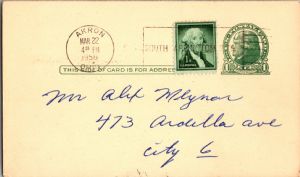 AKRON
MAR 22
4 PM
1956
OHIO
THIS SIDE OF CARD IS FOR ADDRESS
Mr Alex Mlynar
473 Ardella ave
City 6